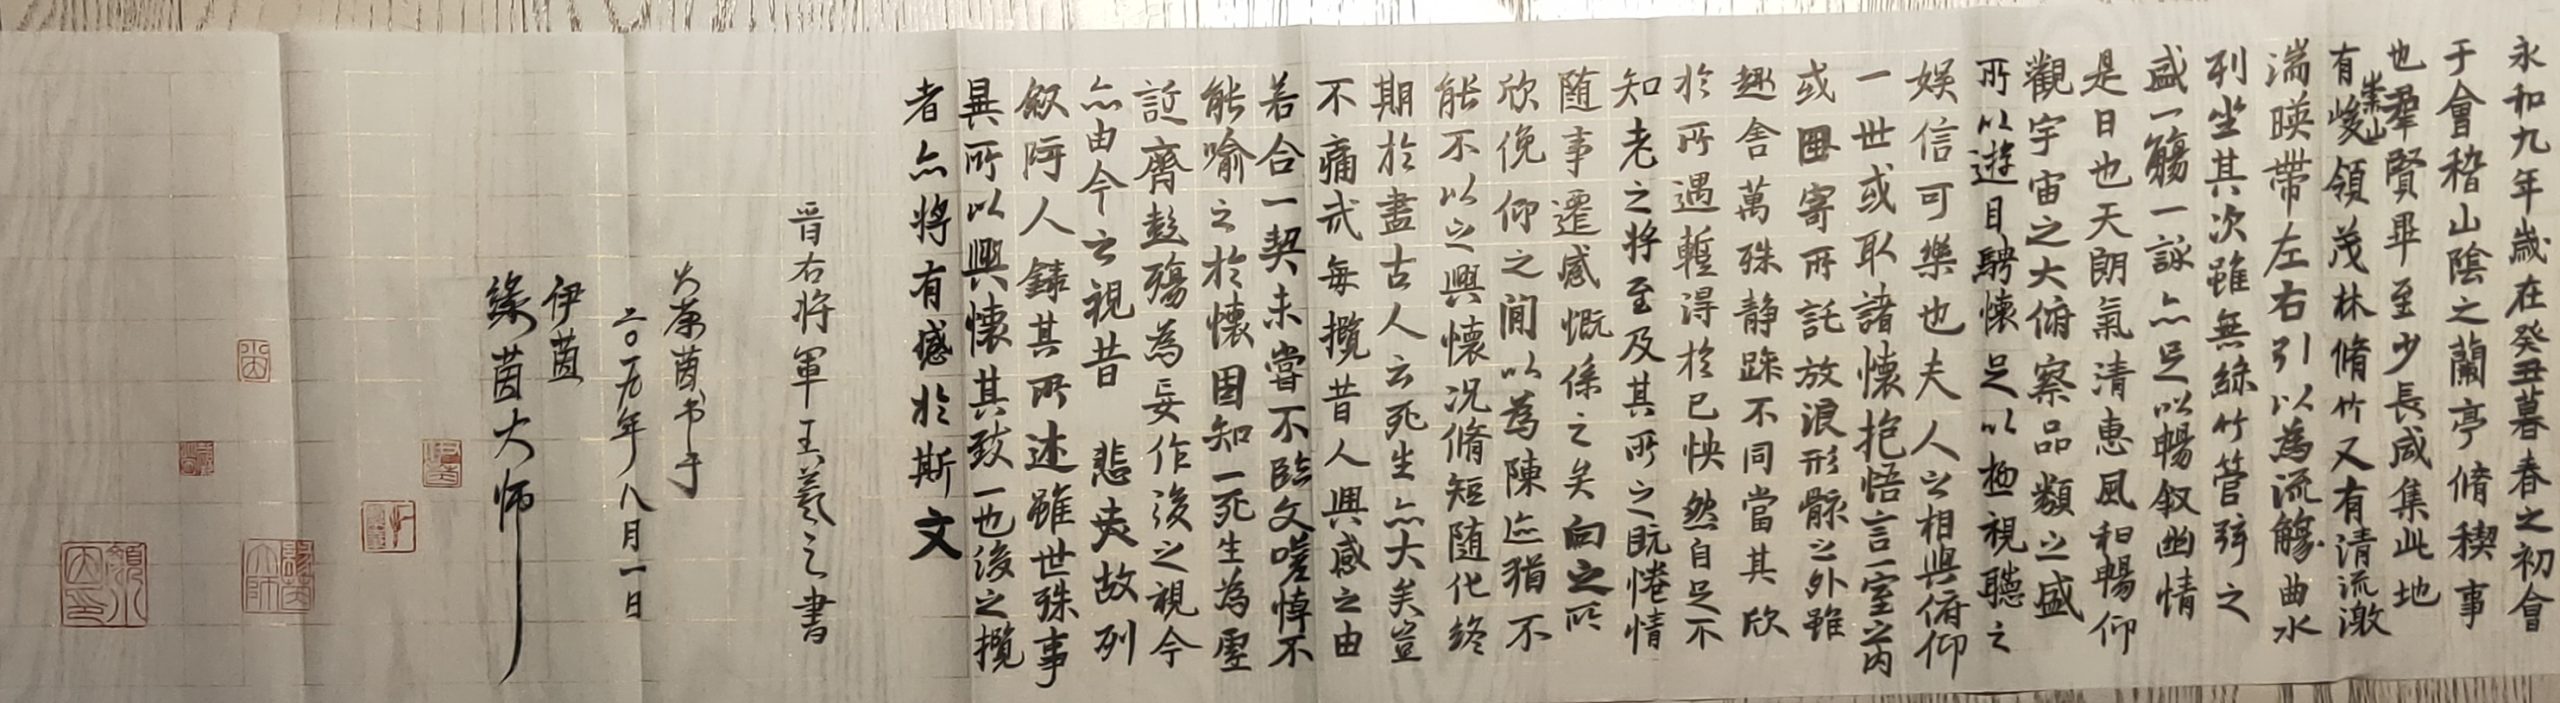 永和九年歲在癸丑暮春之初會
于會稽山陰之蘭亭脩稧事
也羣賢畢至少長咸集此地
有崇山峻領茂林脩竹又有清流激
湍暎帶左右引以為流觴曲水
列坐其次雖無絲竹管弦之
盛一觴一詠亦足以暢叙幽情
是日也天朗氣清惠風和暢仰
觀宇宙之大俯察品類之盛
所以遊目騁懷足以極視聽之
娛信可樂也夫人之相與俯仰
一世或取諸懷抱悟言一室之內
或因寄所託放浪形骸之外雖
趣舍萬殊静躁不同當其欣
於所遇暫得於己怏然自足不
知老之將至及其所之既惓情
随事遷感慨係之矣向之所
欣俛仰之間以為陳迹猶不
能不以之興懷況脩短随化終
期於盡古人云死生亦大矣豈
不痛哉每攬昔人興感之由
若合一契未嘗不臨文嗟悼不
能喻之於懷固知一死生為虛
誕齊彭殤為妄作後之視今
亦由今之視昔 悲夫故列
叙時人錄其所述雖世殊事
異所以興懷其致一也後之攬
者亦將有感於斯文
晋右将軍王羲之書
茵书于
二〇一九年八月一日
伊茵
緣茵大师